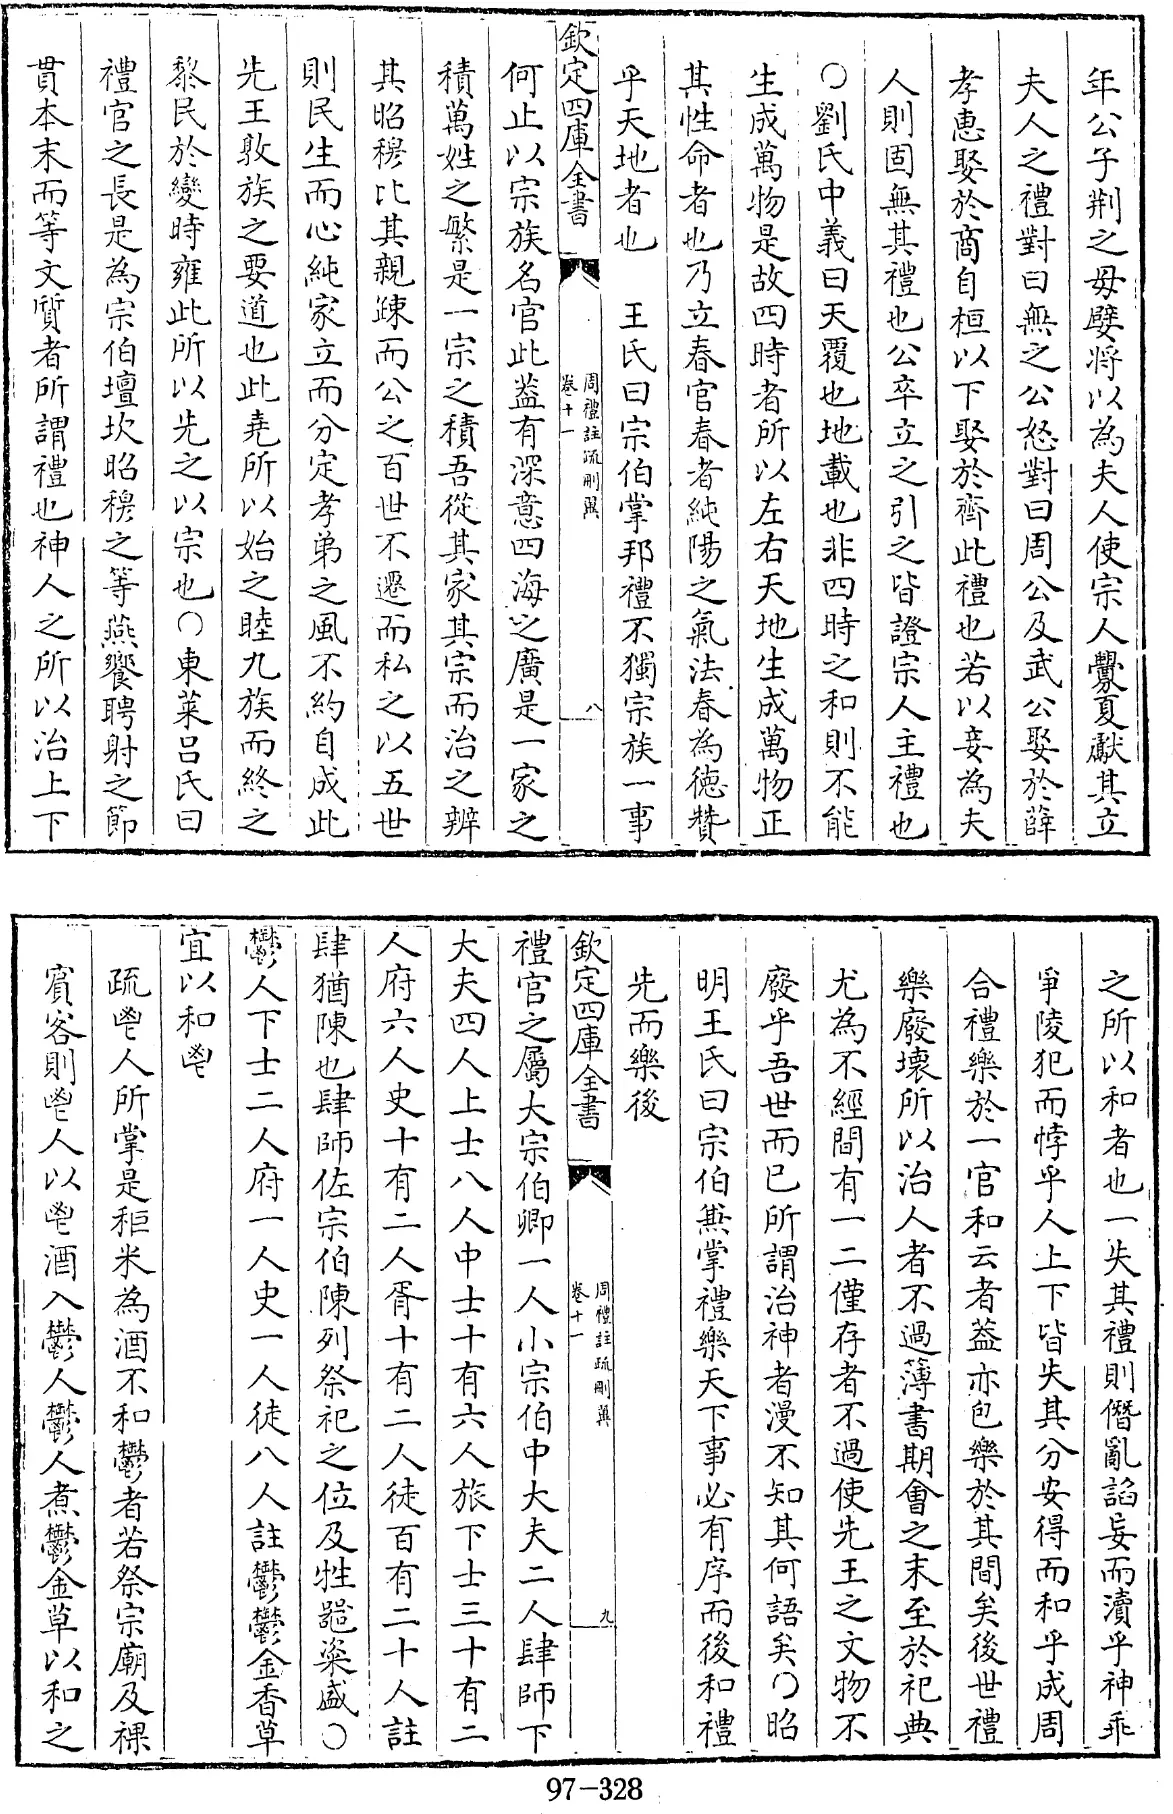 年公子荆之母嬖將以為夫人使宗人釁夏獻其立
夫人之禮對曰無之公怒對曰周公及武公娶於薛
孝惠娶於商自桓以下娶於齊此禮也若以妾為夫
人則固無其禮也公卒立之引之皆證宗人主禮也
○劉氏中義曰天覆也地載也非四時之和則不能
生成萬物是故四時者所以左右天地生成萬物正
其性命者也乃立春官春者純陽之氣法春為徳贊
乎天地者也　王氏曰宗伯掌邦禮不獨宗族一事
欽定四庫全書
周禮註疏刪翼
卷十一
八
何止以宗族名官此葢有深意四海之廣是一家之
積萬姓之繁是一宗之積吾從其家其宗而治之辨
其昭穆比其親疎而公之百世不遷而私之以五世
則民生而心純家立而分定孝弟之風不約自成此
先王敦族之要道也此堯所以始之睦九族而終之
黎民於變時雍此所以先之以宗也○東萊吕氏曰
禮官之長是為宗伯壇坎昭穆之等燕饗聘射之節
貫本末而等文質者所謂禮也神人之所以治上下
之所以和者也一失其禮則僭亂諂妄而瀆乎神乖
爭陵犯而悖乎人上下皆失其分安得而和乎成周
合禮樂於一官和云者葢亦包樂於其間矣後世禮
樂廢壞所以治人者不過簿書期會之末至於祀典
尤為不經間有一二僅存者不過使先王之文物不
廢乎吾世而已所謂治神者漫不知其何語矣○昭
明王氏曰宗伯兼掌禮樂天下事必有序而後和禮
先而樂後
欽定四庫全書
周禮註疏刪翼
卷十一
九
禮官之屬大宗伯卿一人小宗伯中大夫二人肆師下
大夫四人上士八人中士十有六人旅下士三十有二
人府六人史十有二人胥十有二人徒百有二十人註
肆猶陳也肆師佐宗伯陳列祭祀之位及牲器粢盛○
鬱人下士二人府一人史一人徒八人註鬱鬱金香草
宜以和鬯
疏鬯人所掌是秬米為酒不和鬱者若祭宗廟及祼
賓客則鬯人以鬯酒入鬱人鬱人煮鬱金草以和之
97-328